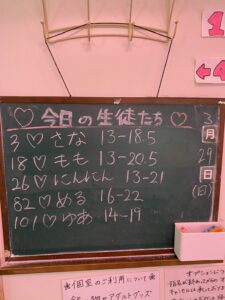 ♡ 今日の生徒たち ♡
3 ♡ さな 13-18.5
18 ♡ もも 13-20.5
26 ♡ にんにん 13-21
82 ♡ める 16-22
101 ♡ ゆあ 14-19
3
月
29
日
(日)
1
←4
個室のご利用について
アダルトグッズ
オプションに